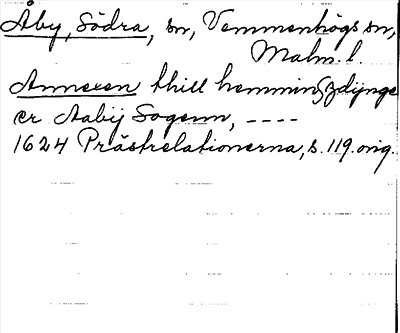 Åby, Södra, sn, Vemmenhögs sn,
Malm. l.
Annexen thill hemmingzdynge
er Aabij Sogenn, ----
1624 Prästrelationerna, s. 119. orig.